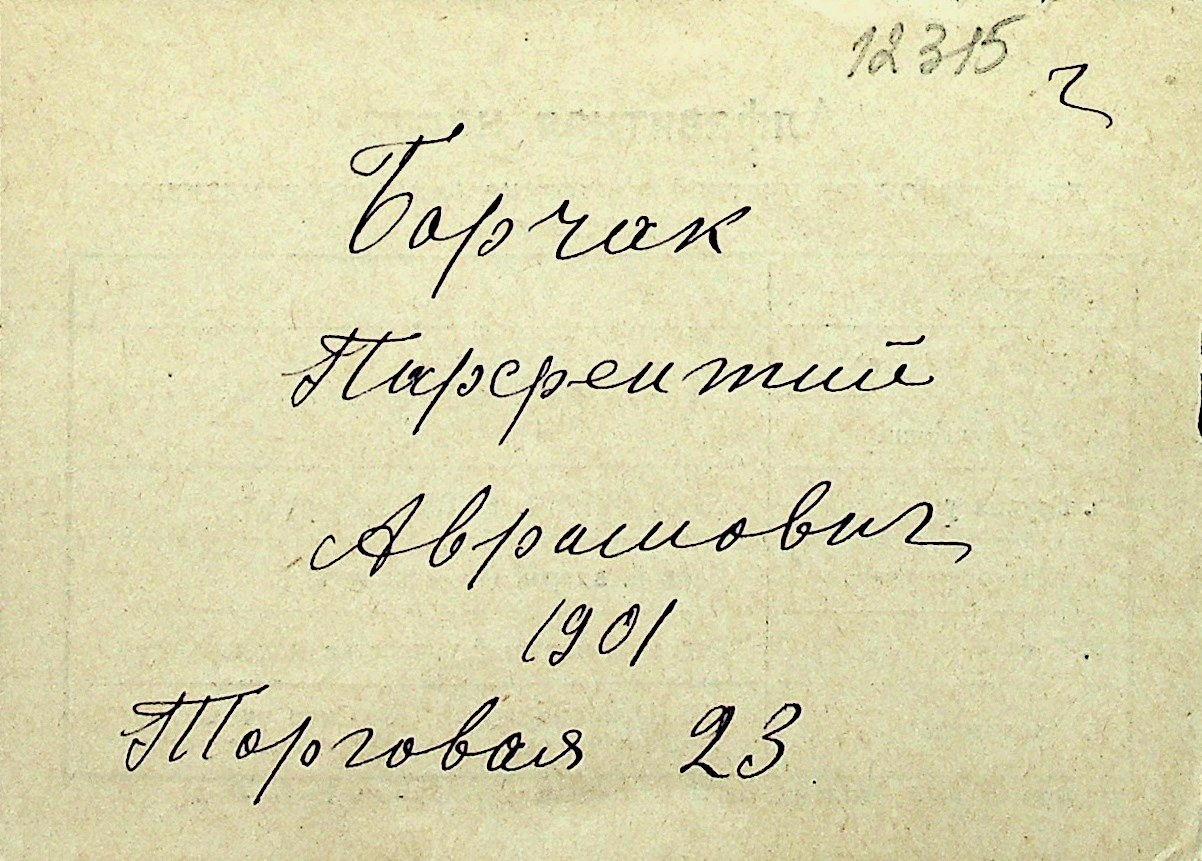 12315
г
Борчак
Парфентий
Аврамович
1901
Торговая 23